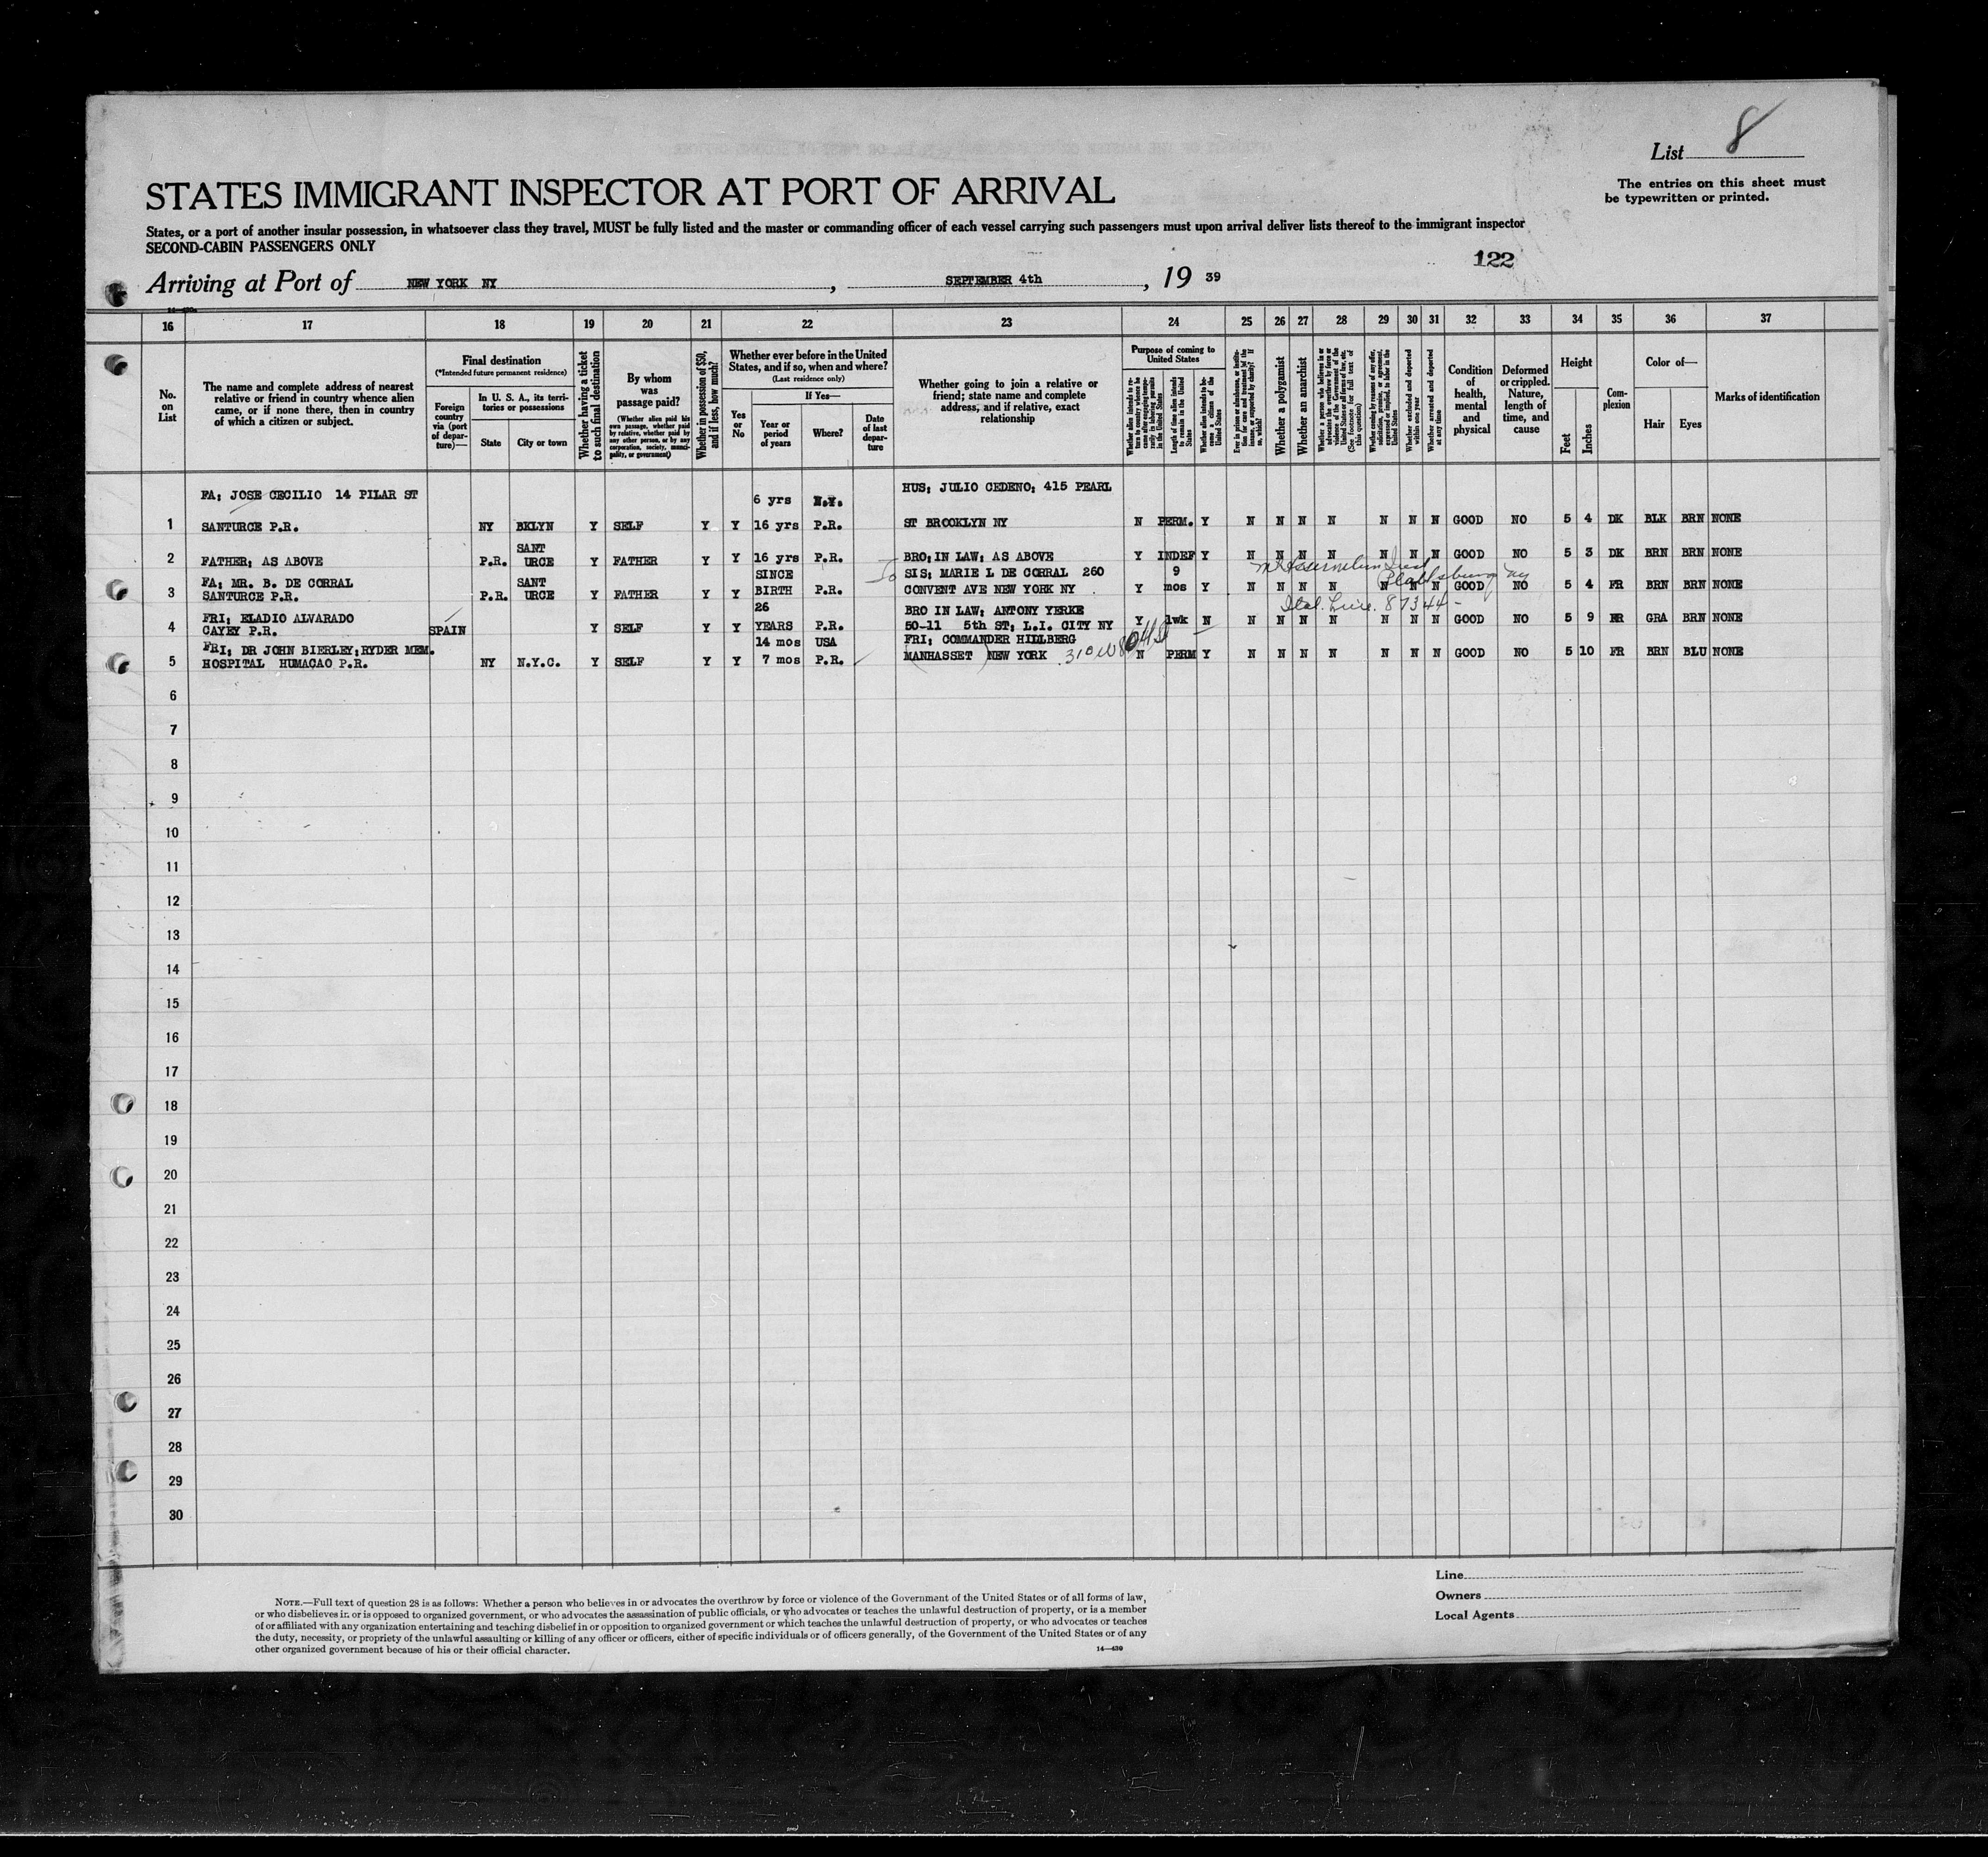 List 8
The entries on this sheet must
be typewritten or printed.
STATES IMMIGRANT INSPECTOR AT PORT OF ARRIVAL
States, or a port of another insular possession, in whatsoever class they travel, MUST be fully listed and the master or commanding officer of each vessel carrying such passengers must upon arrival deliver lists thereof to the immigrant inspector
SECOND-CABIN PASSENGERS ONLY
122
Arriving at Port of NEW YORK NY, SEPTEMBER 4th, 19 39
16 17 18 19 20 21 22 23 24 25 26 27 28 29 30 31 32 33 34 35 36 37
No. on List
The name and complete address of nearest
relative or friend in country whence alien
came, or if none there, then in country
of which a citizen or subject.
Final destination
(*Intended future permanent residence)
Foreign country via (port of departure)—
In U. S. A., its territories or possessions
State
City or town
Whether having a ticket to such final destination
By whom was passage paid?
(Whether alien paid his own passage, whether paid by relative, whether paid by any other person, or by any corporation, society, municipality, or government)
Whether in possession of $50, and if less, how much?
Whether ever before in the United States, and if so, when and where?
(Last residence only)
Yes or No
If Yes—
Year or period of years
Where?
Date of last departure
Whether going to join a relative or
friend; state name and complete
address, and if relative, exact
relationship
Purpose of coming to United States
Length of time alien intends to remain in the United States
Whether alien intends to become a citizen of the United States
Whether a polygamist
Whether an anarchist
(See footnote for full text of this question)
Whether excluded and deported within one year
Whether arrested and deported at any time
Condition of health, mental and physical
Deformed or crippled. Nature, length of time, and cause
Height
Feet
Inches
Complexion
Color of—
Hair
Eyes
Marks of identification
FA; JOSE CECILIO 14 PILAR ST 6 yrs N.Y. HUS; JULIO CEDENO; 415 PEARL
1 SANTURCE P.R. NY BKLYN Y SELF Y Y 16 yrs P.R. ST BROOKLYN NY N PERM. Y N N N N N N N GOOD NO 5 4 DK BLK BRN NONE
SANT
2 FATHER; AS ABOVE P.R. URCE Y FATHER Y Y 16 yrs P.R. BRO; IN LAW; AS ABOVE Y INDEF Y N N N N N N N GOOD NO 5 3 DK BRN BRN NONE
FA; MR. B. DE CORRAL SANT SINCE SIS; MARIE L DE CORRAL 260 9
3 SANTURCE P.R. P.R. URCE Y FATHER Y Y BIRTH P.R. CONVENT AVE NEW YORK NY Y mos Y N N N N N N N GOOD NO 5 4 FR BRN BRN NONE
Plattsburg NY
FRI; ELADIO ALVARADO 26 BRO IN LAW; ANTONY YERKE
4 CAYEY P.R. SPAIN Y SELF Y Y YEARS P.R. 50-11 5th ST; L.I. CITY NY Y 1wk N N N N N N N N GOOD NO 5 9 GRA BRN NONE
FRI; DR JOHN BIERLEY; RYDER MEM. 14 mos USA FRI; COMMANDER HIDLBERG
5 HOSPITAL HUMACAO P.R. NY N.Y.C. Y SELF Y Y 7 mos P.R. MANHASSET NEW YORK 310 W 80th St N PERM Y N N N N N N N GOOD NO 5 10 FR BRN BLU NONE
6
7
8
9
10
11
12
13
14
15
16
17
18
19
20
21
22
23
24
25
26
27
28
29
30
Line
Owners
Local Agents
NOTE.—Full text of question 28 is as follows: Whether a person who believes in or advocates the overthrow by force or violence of the Government of the United States or of all forms of law,
or who disbelieves in or is opposed to organized government, or who advocates the assassination of public officials, or who advocates or teaches the unlawful destruction of property, or is a member
of or affiliated with any organization entertaining and teaching disbelief in or opposition to organized government or which teaches the unlawful destruction of property, or who advocates or teaches
the duty, necessity, or propriety of the unlawful assaulting or killing of any officer or officers, either of specific individuals or of officers generally, of the Government of the United States or of any
other organized government because of his or their official character.
14—430